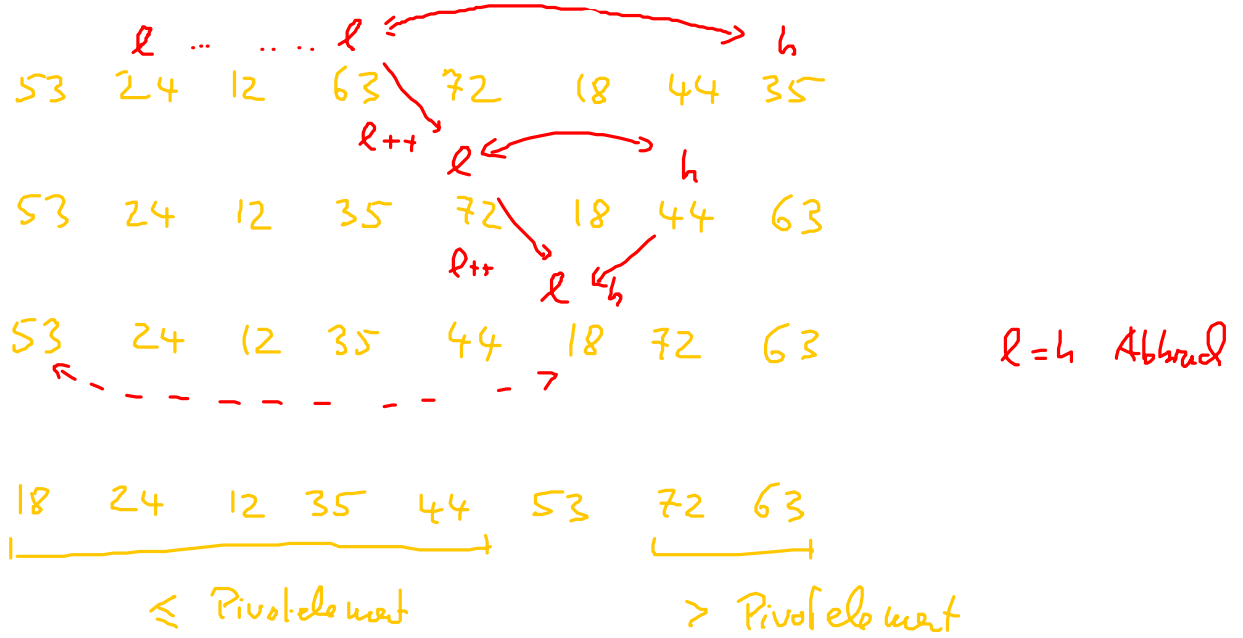 l ... .... l h
53 24 12 63 72 18 44 35
l++ l h
53 24 12 35 72 18 44 63
l++ l h
53 24 12 35 44 18 72 63 l=h Abbruch
18 24 12 35 44 53 72 63
≤ Pivotelement > Pivotelement